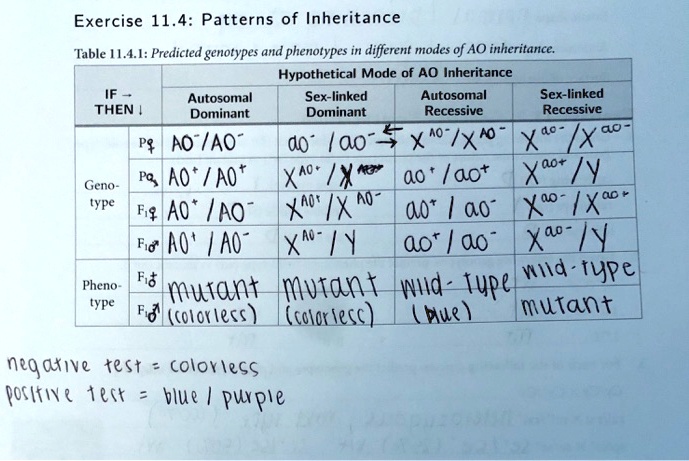 Exercise 11.4: Patterns of Inheritance
Table 11.4.1: Predicted genotypes and phenotypes in different modes of AO inheritance.
IF → THEN ↓ Hypothetical Mode of AO Inheritance
Autosomal Dominant Sex-linked Dominant Autosomal Recessive Sex-linked Recessive
Geno-type
P♀ AO⁻/AO⁻ ao⁻/ao⁻ ⇄ X^AO⁻/X^AO⁻ X^ao⁻/X^ao⁻
P♂ AO⁺/AO⁺ X^AO⁺/Y ao⁺/ao⁺ X^ao⁺/Y
F₁♀ AO⁺/AO⁻ X^AO⁺/X^AO⁻ ao⁺/ao⁻ X^ao⁻/X^ao⁺
F₁♂ AO⁺/AO⁻ X^AO⁻/Y ao⁺/ao⁻ X^ao⁻/Y
Pheno-type
F₁♀ mutant mutant wild-type wild-type
F₁♂ (colorless) (colorless) (blue) mutant
negative test = colorless
positive test = blue / purple